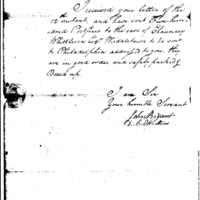 I received your letter of the
12th instant, and have sent two
and to the care of Chauncey
Whittlesey Esqr Middletown to be sent
to Philadelphia addressed to you, they
are in good order and safely packed &
Boxed up.
I am Sir
Your humble Servant
John Bryant